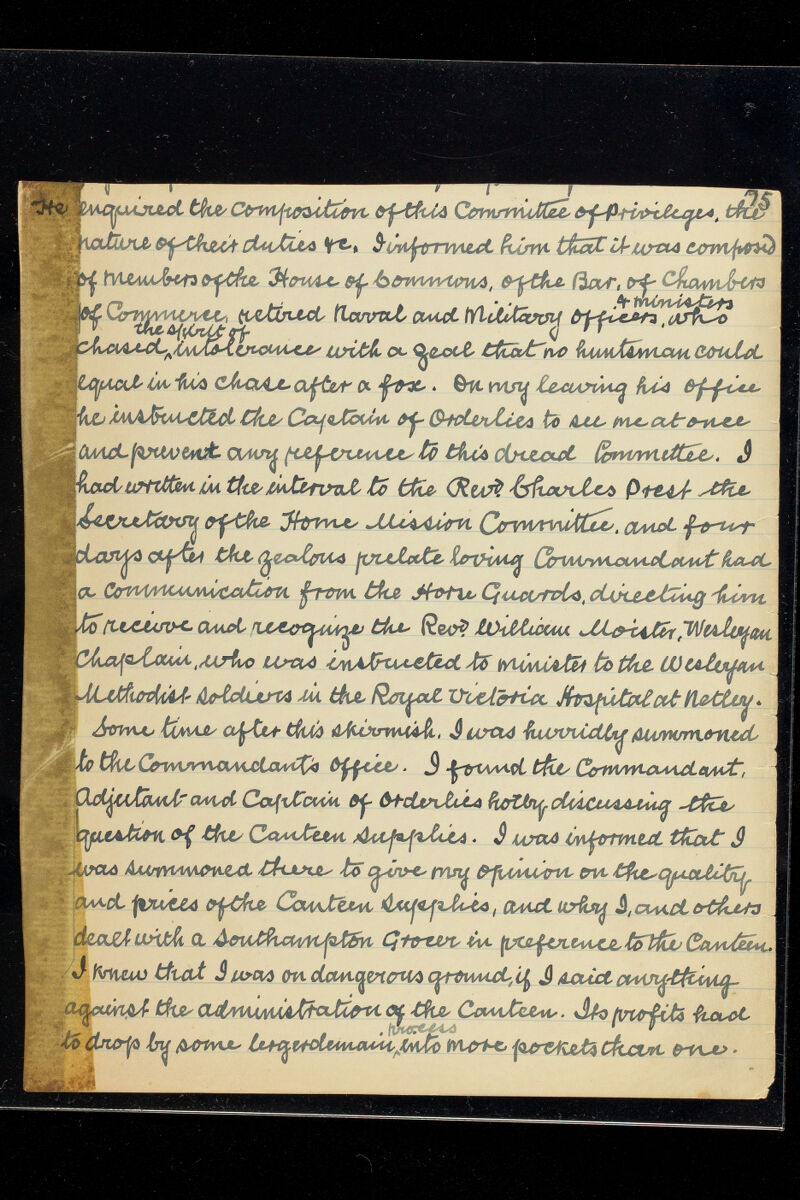 75
He enquired the composition of this Committee of Privileges, the
nature of their duties &c. I informed him that it was composed
of members of the House of Commons, of the Bar, of Chambers
& ministers
of Commerce, retired Naval and Military officers, who
the spirit of
chased, intolerance with a zeal that no huntsman could
equal in his chase after a fox. On my leaving his office
he instructed the Captain of Orderlies to see me at once
and prevent any reference to this dread Committee. I
had written in the interval to the Revd. Charles Prest the
Secretary of the Home Mission Committee, and four
days after the zealous prelate loving Commandant had
a communication from the Horse Guards, directing him
to receive and recognize the Revd. William Moister, Wesleyan
Chaplain, who was instructed to minister to the Wesleyan
Methodist soldiers in the Royal Victoria Hospital at Netley.
Some time after this skirmish, I was hurridly summoned
to the Commandant's office. I found the Commandant,
Adjutant and Captain of Orderlies hotly discussing the
question of the Canteen supplies. I was informed that I
was summoned there to give my opinion on the quality
and prices of the Canteen supplies, and why I, and others
dealt with a Southampton Grocer in preference to the Canteen.
I knew that I was on dangerous ground, if I said anything
against the administration of the Canteen. Its profits had
process
to drop by some lergerdemain, into more pockets than one.